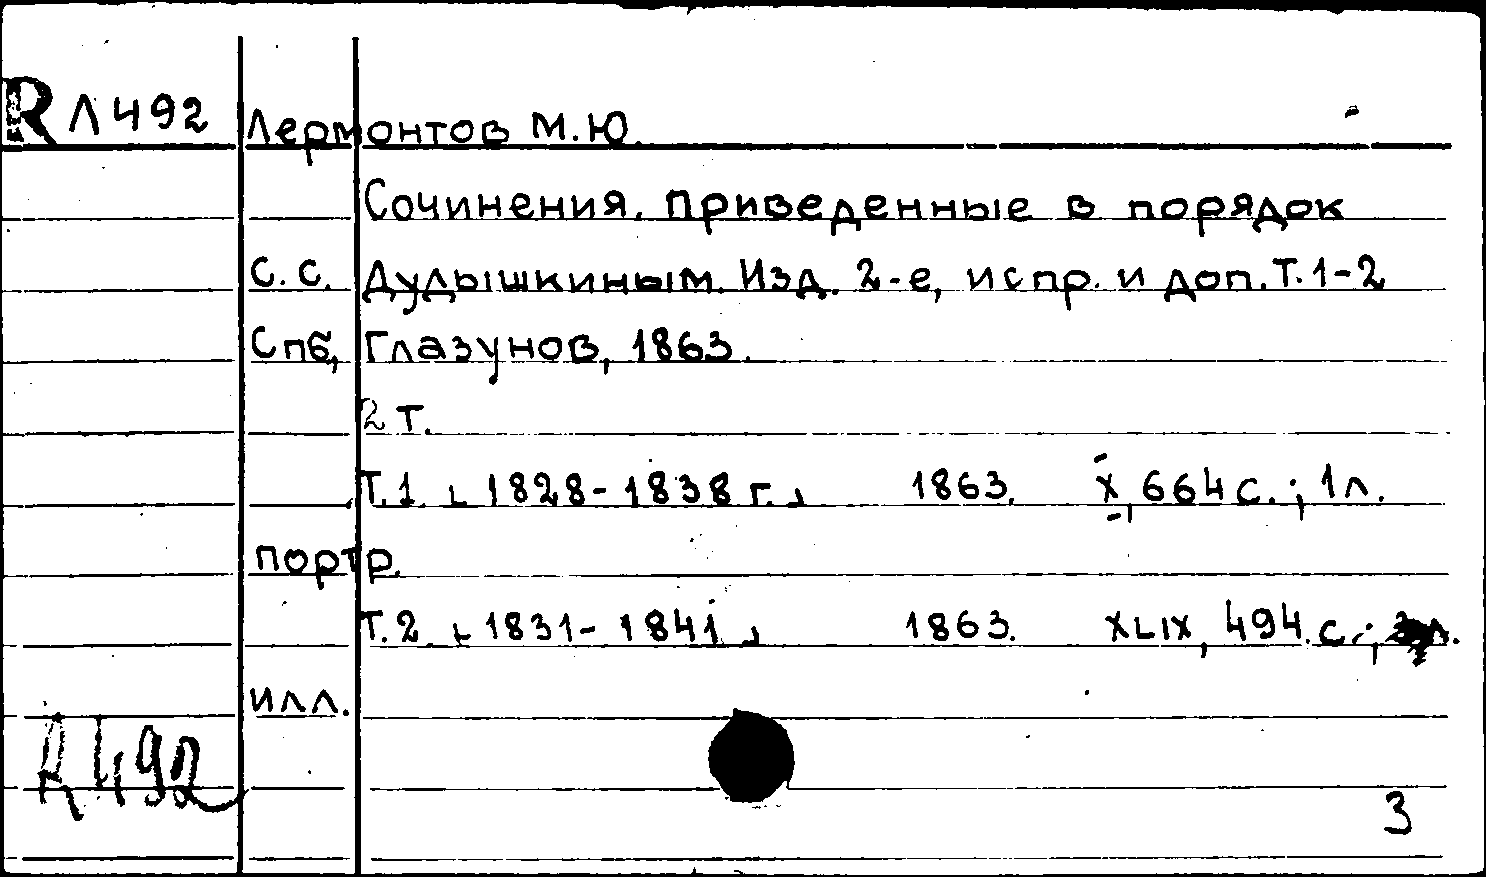 R Л492 Лермонтов М.Ю.
Сочинения. Приведенные в порядок
С.С. Дудышкиным. Изд. 2-е, испр. и доп. Т.1-2
Спб, Глазунов, 1863.
2 т.
Т.1. [1828-1838 г.] 1863. X, 664 с.; 1 л.
портр.
Т.2. [1831-1841] 1863. XLIX, 494 с.; л.
илл.
Л492
3